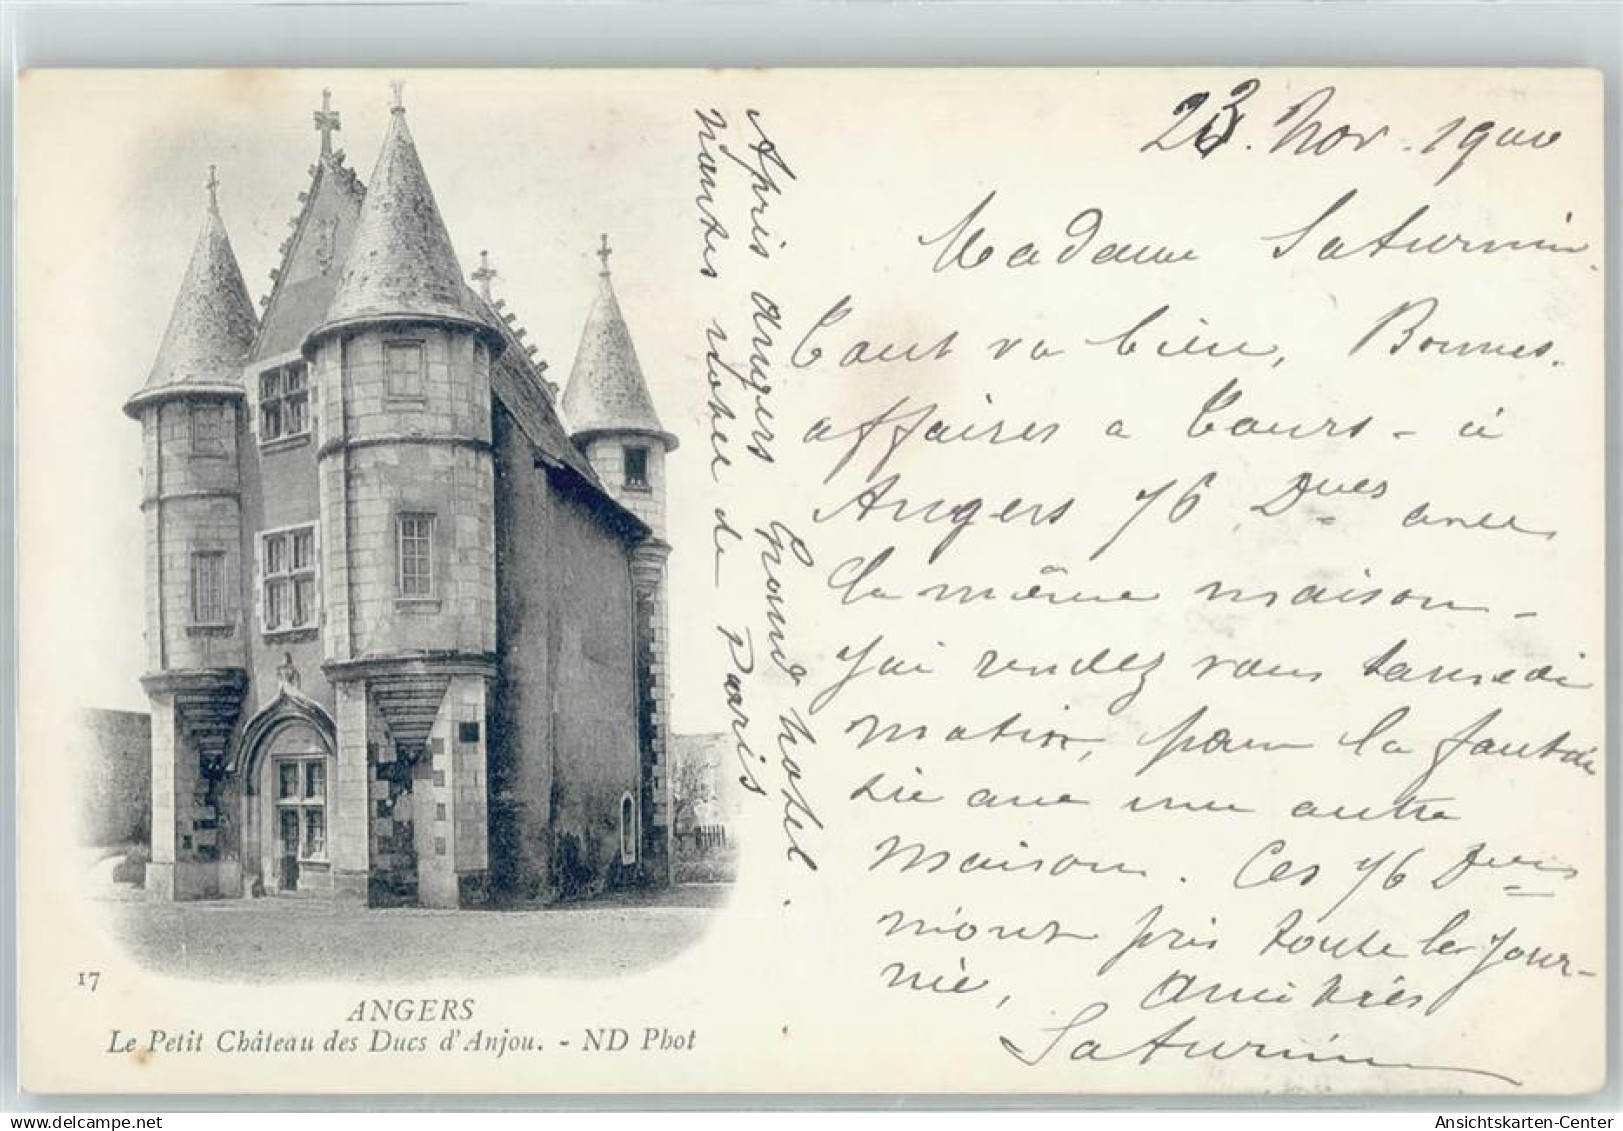 23. Nov. 1900
Madame Saturnin.
Tout va bien, Bonnes.
affaires a Tours - à
Angers 76 Dnes avec
la même maison -
J'ai rendez vous samedi
matin, pour la fantai
sie avec une autre
maison. Ces 76 Dnes
m'ont pris toute la jour-
née, Amitiés
Saturnin
Après Angers Grand hotel.
Nantes notre de Paris
17
ANGERS
Le Petit Château des Ducs d'Anjou. - ND Phot
Ansichtskarten-Center